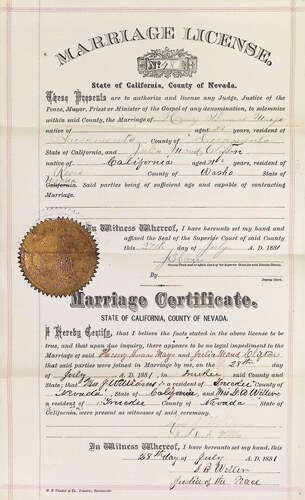 MARRIAGE LICENSE.
No. 48
State of California, County of Nevada.
These Presents are to authorize and license any Judge, Justice of the
Peace, Mayor, Priest or Minister of the Gospel of any denomination, to solemnize
within said County, the Marriage of Henry Thomas Mayo
native of aged years, resident of
Sacramento County of Sacramento
State of California, and Julia Maud Clifton
native of California aged years, resident of
Reno County of Washo State of
California. Said parties being of sufficient age and capable of contracting
Marriage.
In Witness Whereof, I have hereunto set my hand and
affixed the Seal of the Superior Court of said County
this 27th day of July A. D. 1881
By
Deputy Clerk.
Marriage Certificate.
STATE OF CALIFORNIA, COUNTY OF NEVADA.
I Hereby Certify, that I believe the facts stated in the above license to
be true, and that upon due inquiry, there appears to be no legal impediment to the
Marriage of said Henry Thomas Mayo and Julia Maud Clifton
that said parties were joined in Marriage by me, on the 28th day
of July A. D. 1881, in Truckee said County and
State; that Williams a resident of Truckee County of
Nevada State of California, and Mrs
a resident of Truckee County of Nevada State of
California, were present as witnesses of said ceremony.
In Witness Whereof, I have hereunto set my hand, this
28th day of July A. D. 1881
Justice of the Peace